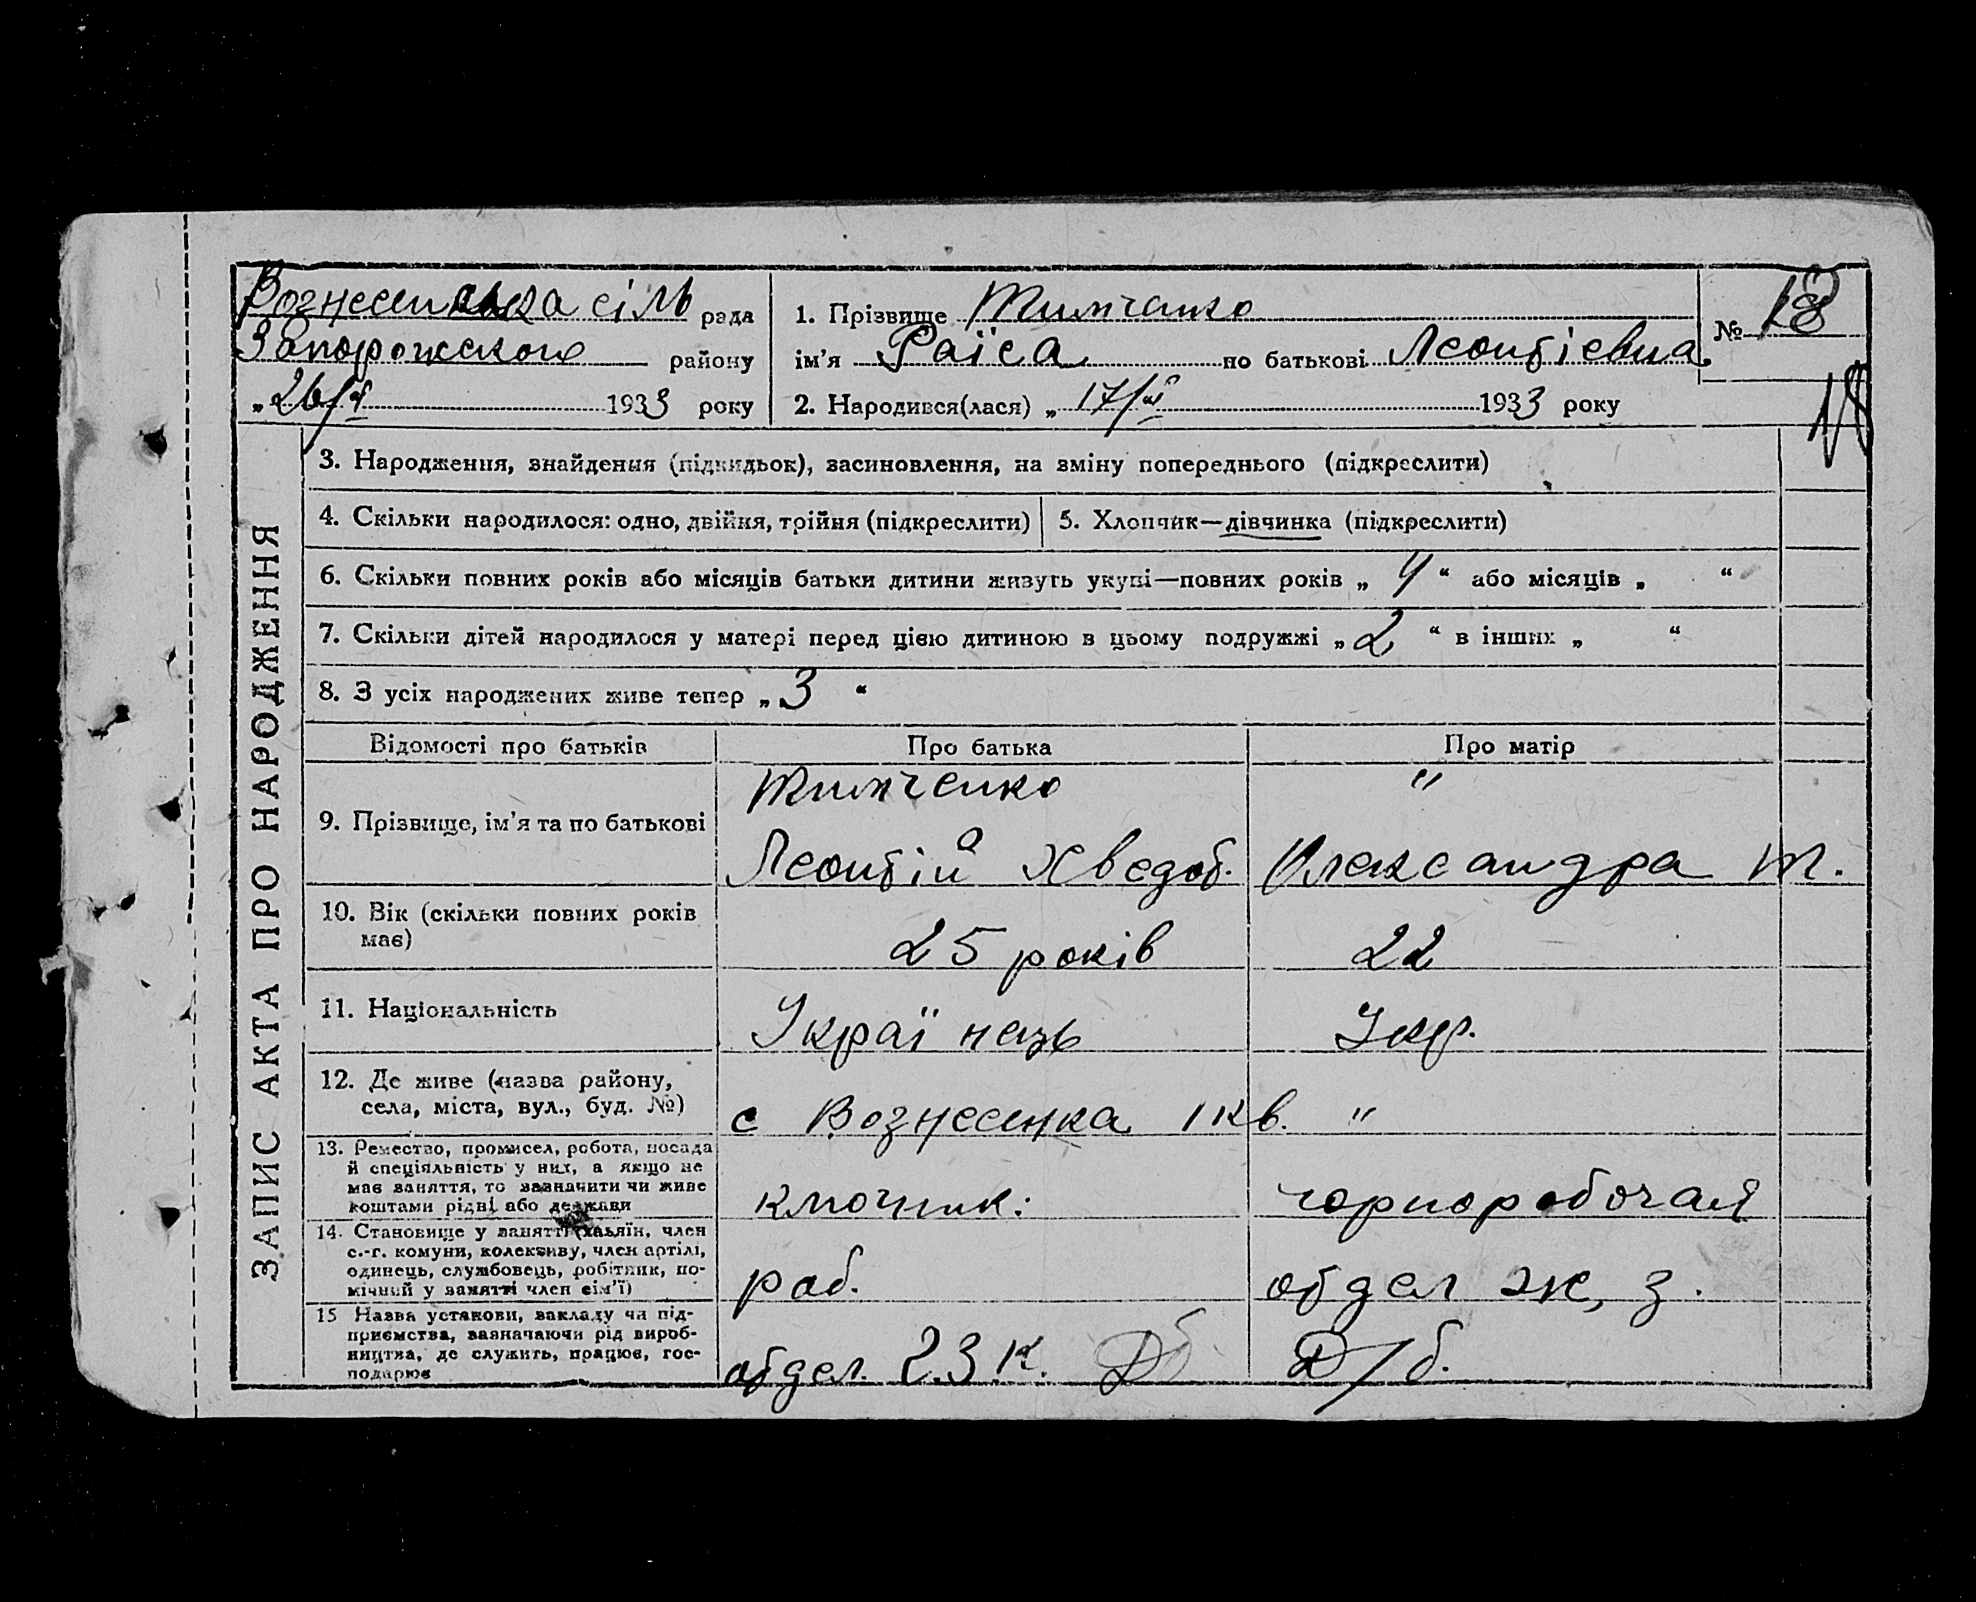 Вознесенська сіль рада
Запорожского району
„26/I 1933 року
1. Прізвище Тимченко
ім’я Раїса по батькові Леонтієвна
2. Народився(лася) „17/I 1933 року
№ 18
18
ЗАПИС АКТА ПРО НАРОДЖЕННЯ
3. Народження, знайдення (підкидьок), засиновлення, на зміну попереднього (підкреслити)
4. Скільки народилося: одно, двійня, трійня (підкреслити)
5. Хлопчик—дівчинка (підкреслити)
6. Скільки повних років або місяців батьки дитини живуть укупі—повних років „ 4 “ або місяців „ “
7. Скільки дітей народилося у матері перед цією дитиною в цьому подружжі „ 2 “ в інших „ “
8. З усіх народжених живе тепер „ 3 “
Відомості про батьків Про батька Про матір
9. Прізвище, ім’я та по батькові
Тимченко
Леонтій Хведот.
"
Олександра Т.
10. Вік (скільки повних років
має)
25 років
22
11. Національність
Українець
Укр.
12. Де живе (назва району,
села, міста, вул., буд. №)
с Вознесенка 1 кв.
"
13. Ремество, промисел, робота, посада
й спеціяльність у них, а якщо не
має заняття, то зазначити чи живе
коштами рідні або держави
ключник.
чорноробочая
14. Становище у занятті (хазяїн, член
с.-г. комуни, колективу, член артілі,
одинець, службовець, робітник, по-
мічний у занятті член сім’ї)
раб.
отдел ж, з.
15 Назва установи, закладу чи під-
приємства, зазначаючи рід вироб-
ництва, де служить, працює, гос-
подарює
отдел. 23 к. Дб
Д/б.